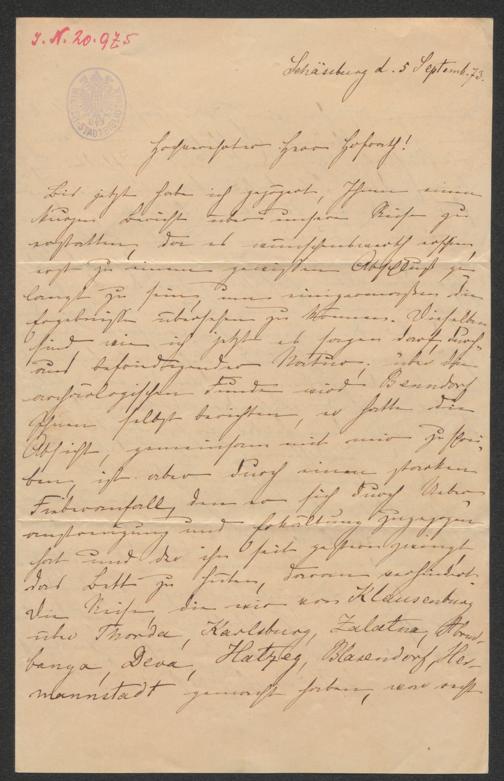 J. N. 20.975
Schässburg d. 5 Septemb. 73.
Hochverehrter Herr Hofrath!
Bis jetzt habe ich gezögert, Ihnen einen
kurzen Bericht über unsere Reise zu
erstatten, da es wünschenswerth erschien,
erst zu einem gewissen Abschluss ge-
langt zu sein, um einigermassen die
Ergebnisse übersehen zu können. Dieselben
sind wie ich jetzt es sagen darf, durch-
aus befriedigender Natur; über die
archäologischen Funde wird Benndorf
Ihnen selbst berichten, er hatte die
Absicht, gemeinsam mit mir zu schrei-
ben, ist aber durch einen starken
Fieberanfall, den er sich durch Ueber-
anstrengung und Erkältung zugezogen
hat und der ihn seit gestern zwingt
das Bett zu hüten, daran verhindert.
Die Reise, die wir von Klausenburg
über Thorda, Karlsburg, Zalatna, Abrud-
banya, Deva, Hatzeg, Blasendorf, Her-
mannstadt gemacht haben, war recht